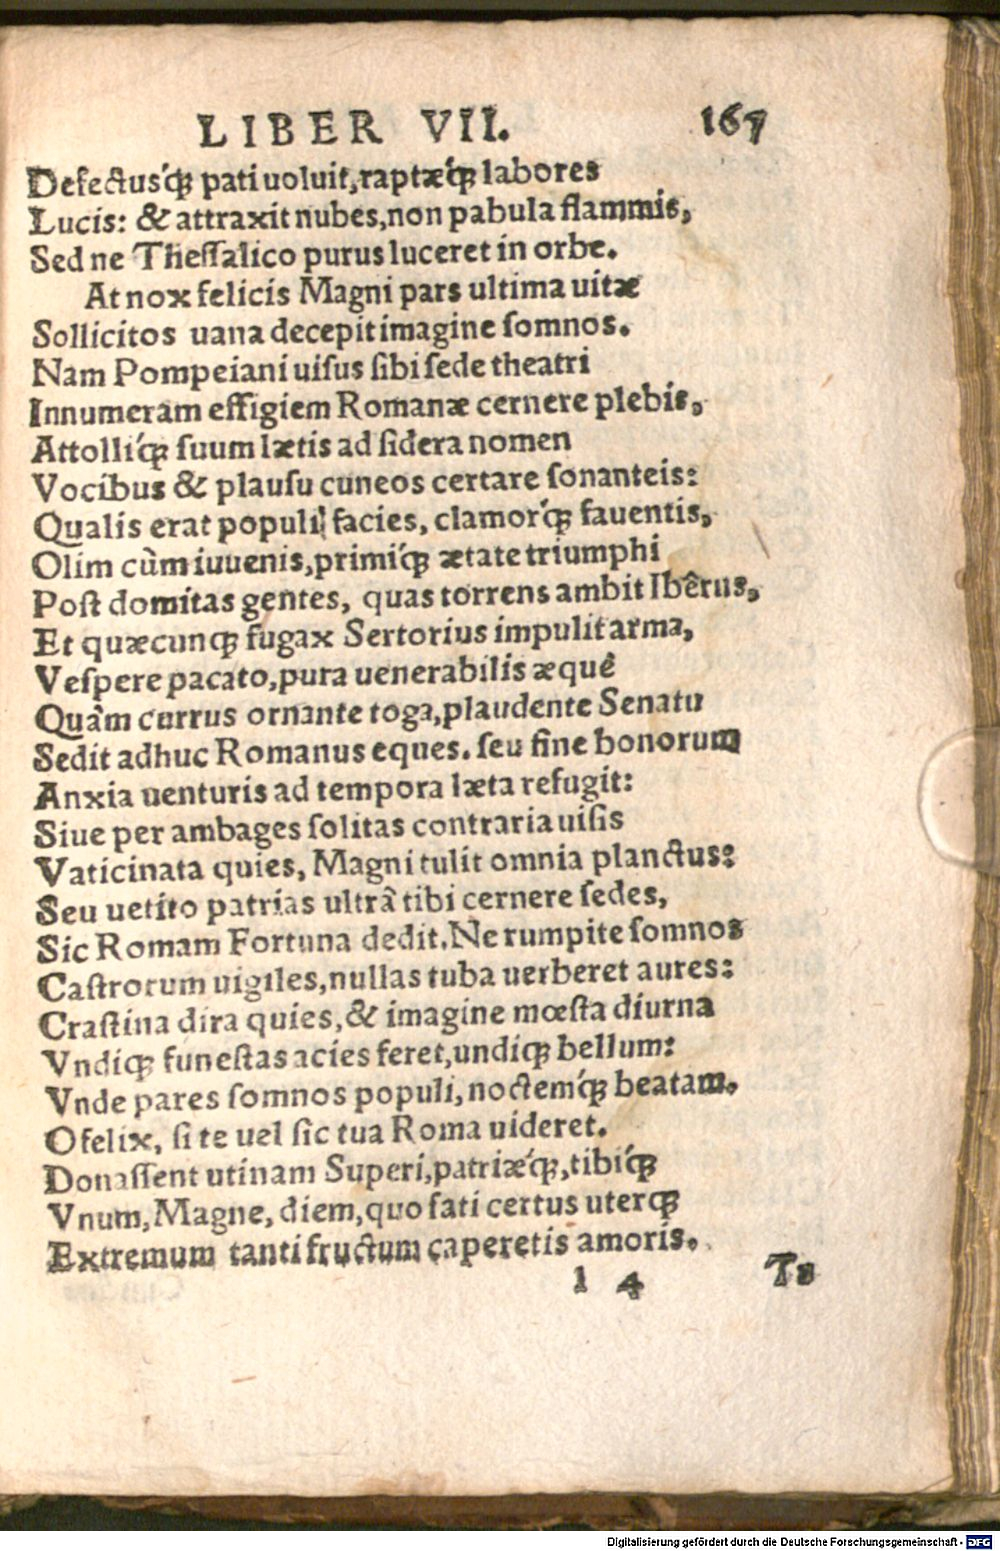 LIBER VII. 167
Defectusq́; pati uoluit, raptæq́; labores
Lucis: & attraxit nubes, non pabula flammis,
Sed ne Theſſalico purus luceret in orbe.
At nox felicis Magni pars ultima uitæ
Sollicitos uana decepit imagine ſomnos.
Nam Pompeiani uiſus ſibi ſede theatri
Innumeram effigiem Romanæ cernere plebis,
Attolliq́; ſuum lætis ad ſidera nomen
Vocibus & plauſu cuneos certare ſonanteis:
Qualis erat populi facies, clamorq́; fauentis,
Olim cùm iuuenis, primiq́; ætate triumphi
Poſt domitas gentes, quas torrens ambit Ibêrus,
Et quæcunq; fugax Sertorius impulit arma,
Veſpere pacato, pura uenerabilis æquê
Quàm currus ornante toga, plaudente Senatu
Sedit adhuc Romanus eques. ſeu fine bonorum
Anxia uenturis ad tempora læta refugit:
Siue per ambages ſolitas contraria uiſis
Vaticinata quies, Magni tulit omnia planctus:
Seu uetito patrias ultrâ tibi cernere ſedes,
Sic Romam Fortuna dedit. Ne rumpite ſomnos
Caſtrorum uigiles, nullas tuba uerberet aures:
Craſtina dira quies, & imagine mœſta diurna
Vndiq; funeſtas acies feret, undiq; bellum:
Vnde pares ſomnos populi, noctemq́; beatam.
O felix, ſi te uel ſic tua Roma uideret.
Donaſſent utinam Superi, patriæq́;, tibiq́;
Vnum, Magne, diem, quo fati certus uterq;
Extremum tanti fructum caperetis amoris.
l 4 Tu
Digitalisierung gefördert durch die Deutsche Forschungsgemeinschaft - DFG